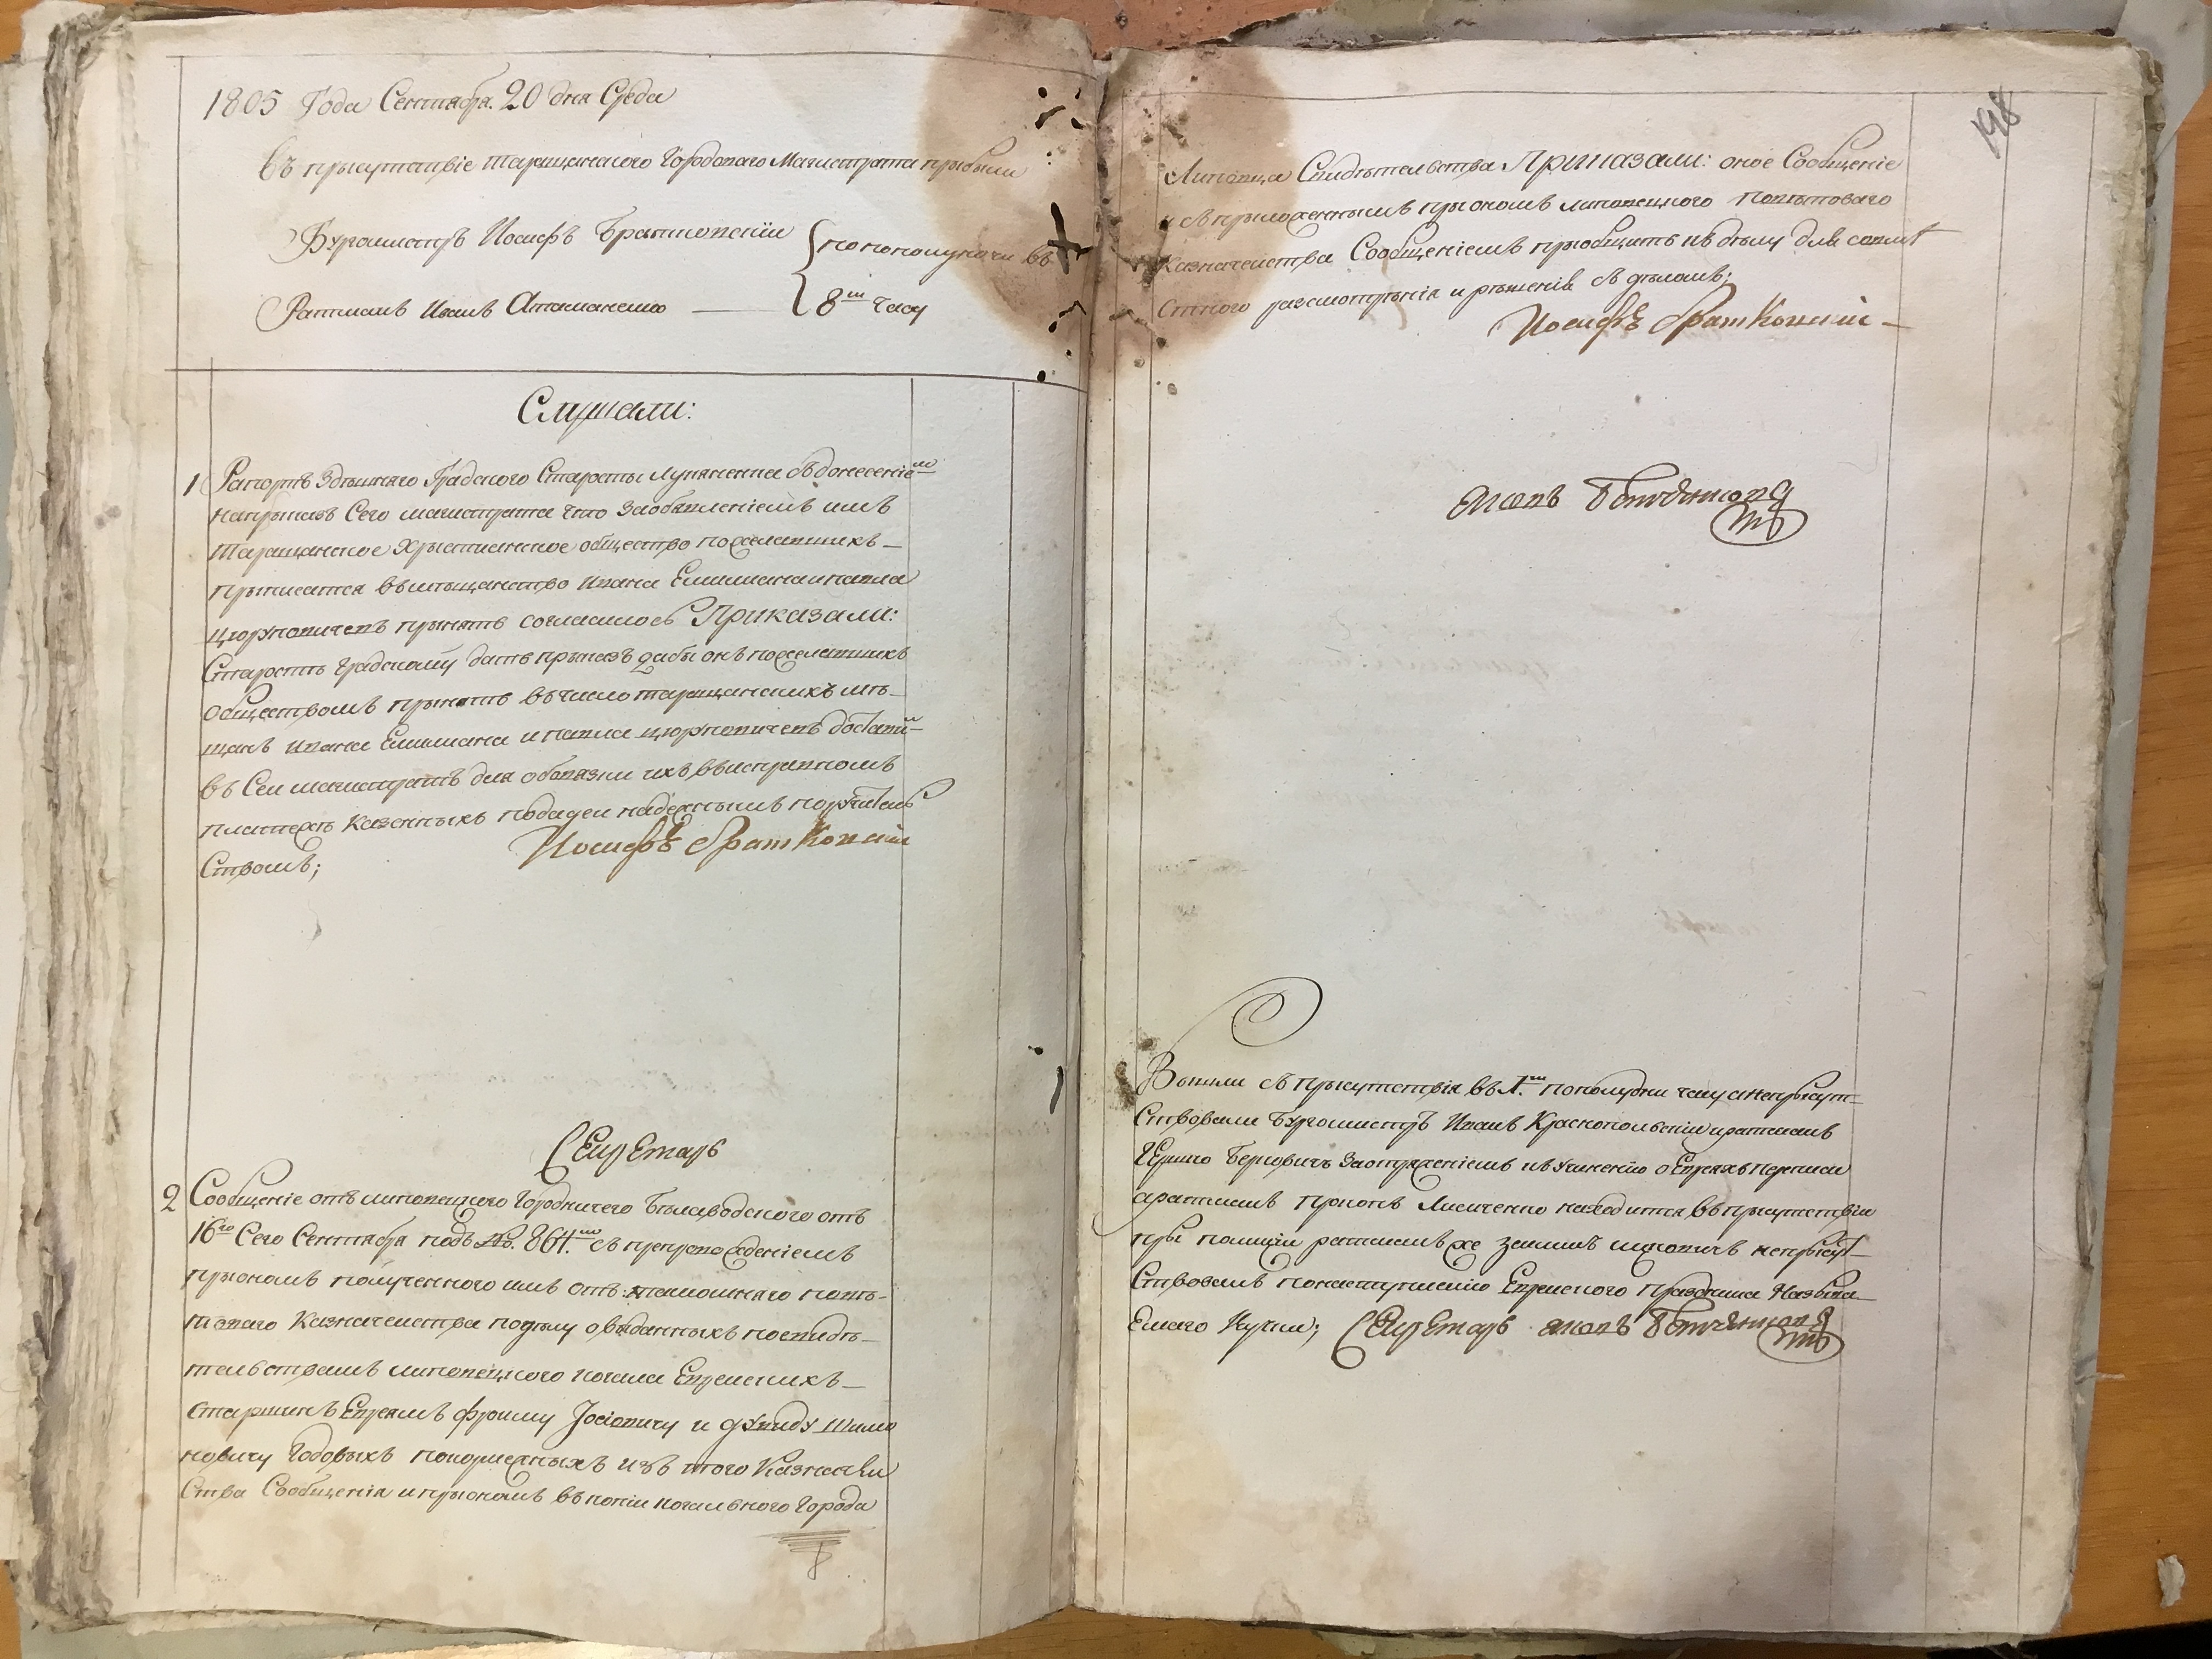 1805 Года Сентября. 20 дня Среда
Въ присутствіе таращанского Городоваго Магистрата прибыли
Бургомистръ Иосифъ Братковскій
пополуночи въ
Ратманъ Иванъ Атаманенко
8м часу
Слушали:
1 Рапортъ Здѣшнаго Градского Старосты Лупяненка съ донесеніем
наприказъ Сего магистрата что заобявленіемъ имъ
Таращанское Християнское общество пожелавшихъ
приписатся въмѣщанство Ивана Емилиана и павла
принять согласилось Приказали:
Старостѣ Градскому дать приказъ дабы онъ пожелавшихъ
обществомъ принять въ число таращанскихъ мѣ-
щанъ Ивана Емилиана и павла доставил
въ Сей магистратъ для обовязки ихъ въисправномъ
платежѣ казенныхъ податей надежнымъ поручитель
Ствомъ;
Иосифъ братковский
Секретарь
2 Сообщеніе отъ липовецкого Городничего Бѣлаводского отъ
16го Сего Сентября подъ №. 864.м съ препровожденіемъ
приономъ полученного имъ отъ тамошняго повѣ-
товаго Казначейства подѣлу овыданныхъ посвидѣ-
тельствамъ липовецкого кагала Еврейскихъ
старшинъ Евреямъ Фроиму Јосіовичу и Шимо
новичу Годовыхъ покормежныхъ изъ того Казначей
Ства Сообщенія и приономъ въ копіи кагального Города
198
Липовца Свидѣтельства Приказали: оное Сообщеніе
и съ приложеннымъ приономъ липовецкого повѣтоваго
Казначейства Сообщеніемъ приобщить къ дѣлу для совмѣ
стного разсмотренія и рѣшенія съ дѣломъ;
Иосифъ братковский
Яковъ
Вышли съ присутствія въ 1.м пополудни часу анеприсут-
Ствовали Бургомистръ Иванъ Краснопольскій иратманъ
Гершко Берковичъ заотряженіемъ къ учиненію о Евреяхъ переписи
аратманъ Прокопъ Лисиченко находится въ присутствіи
при полиціи ратманъ же неприсут
Ствовалъ понаступленію Еврейского праздника Называ
Емаго Кучки; Секретарь Яковъ